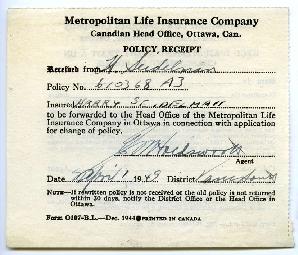 Metropolitan Life Insurance Company
Canadian Head Office, Ottawa, Can.
POLICY RECEIPT
Received from H Seidelman
Policy No. 610368 A3
Insured HARRY SEIDELMAN
to be forwarded to the Head Office of the Metropolitan Life
Insurance Company in Ottawa in connection with application
for change of policy.
Agent
Date April 1949 District
NOTE—If rewritten policy is not received or the old policy is not returned
within 30 days, notify the District Office or the Head Office in
Ottawa.
Form O107-B.L.—Dec. 1944 PRINTED IN CANADA